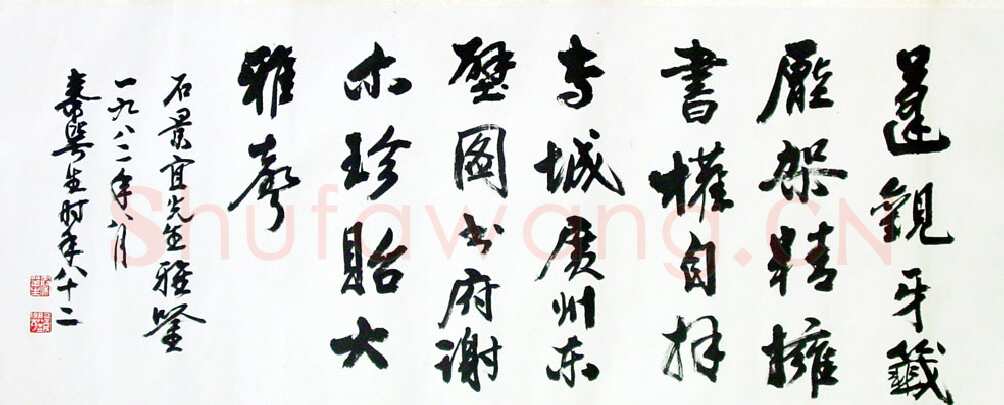 蓬觀牙籤
龐架精擁
書權自拜
专城廣州东
壁图书府谢
尔珍貽大
雅聲
石景宜先生雅鑒
一九八二年八月
秦咢生时年八十二
Shufawang.CN